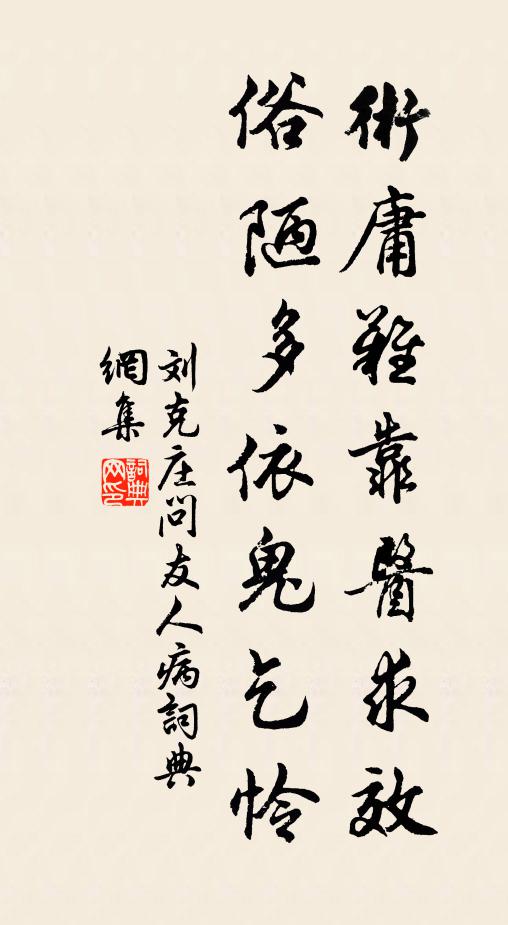 術庸難靠醫求效
俗陋多依鬼乞怜
刘克庄问友人病詞典
網集
詞典
网印